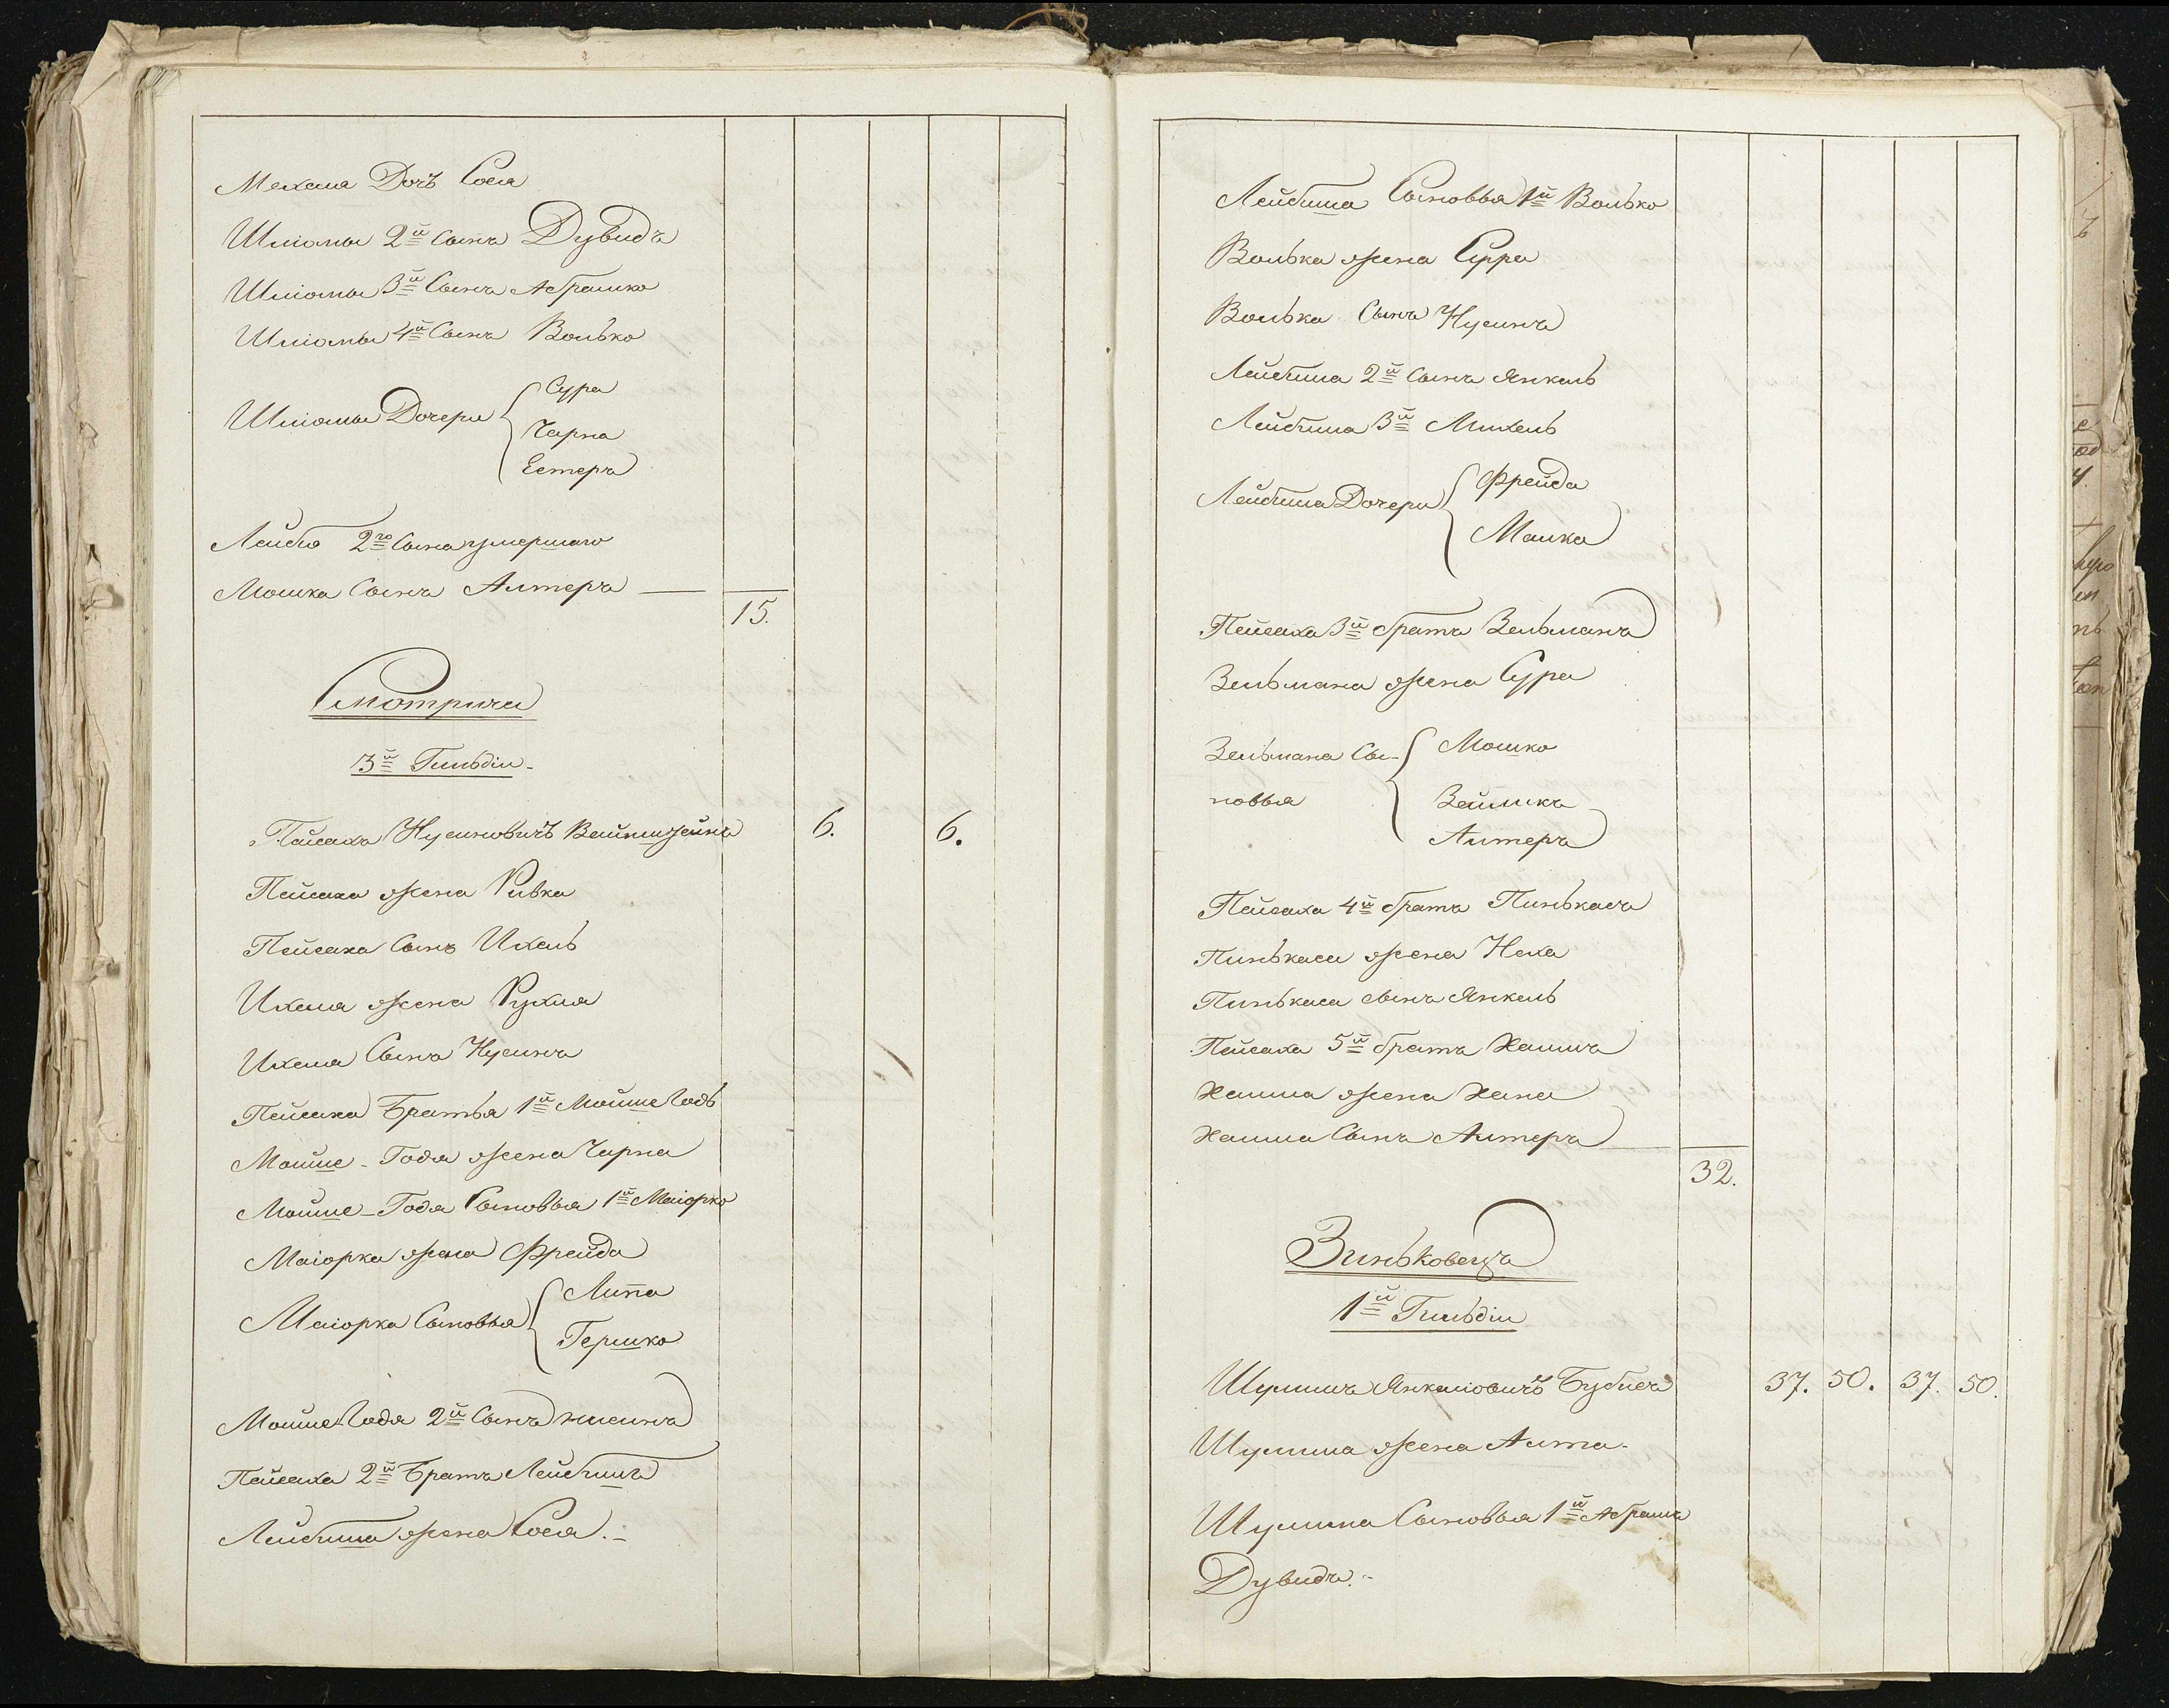 Мехеля Дочь Сося
Шліомы 2й Сынъ Дувидъ
Шліомы 3й Сынъ Абрамко
Шліомы 4й Сынъ Волько
Шліомы Дочери Сура
Чарна
Естеръ
Лейбы 2го Сына умершаго
Мошка Сынъ Алтеръ
15.
Смотричи
3й Гильдіи
Пейсахъ Нусиновичъ
6. 6.
Пейсаха жена Ривка
Пейсаха Сынъ Ихель
Ихеля жена Рухля
Ихеля Сынъ Нусинъ
Пейсаха Братья 1й Мойше Годь
Мойше-Годя жена Чарна
Мойше-Годя Сыновья 1й Маіорко
Маіорка жена Фрейда
Маіорка Сыновья Липа
Гершко
Мойше Годя 2й Сынъ
Пейсаха 2й Братъ Лейбишъ
Лейбиша жена Сося.
Лейбиша Сыновья 1й Волько
Волька жена Сурра
Волька Сынъ Нусинъ
Лейбиша 2й Сынъ Янкель
Лейбиша 3й Михель
Лейбиша Дочери Фрейда
Малка
Пейсаха 3й братъ Зельманъ
Зельмана жена Сура
Зельмана Сы- Мошко
новья Зейликъ
Алтеръ
Пейсаха 4й братъ Пинькасъ
Пинькаса жена Неха
Пинькаса сынъ Янкель
Пейсаха 5й братъ Хаимъ
Хаима жена Хана
Хаима Сынъ Алтеръ
32.
Зиньковецъ
1й Гильдіи
Шулимъ Янкеліовичъ Бубисъ
37. 50. 37. 50.
Шулима жена Алта.
Шулима Сыновья 1й Абрамъ
Дувидъ.